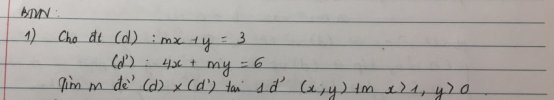 BTVN :
1) Cho đt (d) : mx + y = 3
(d') : 4x + my = 6
Tìm m để (d) x (d') tại 1 đ' (x, y) tm x > 1, y > 0